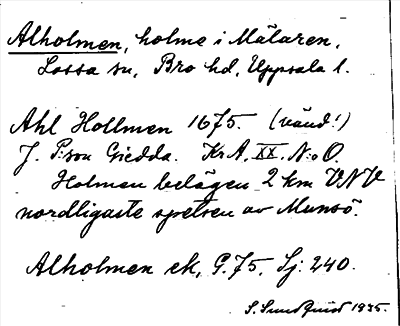 Alholmen, holme i Mälaren,
Lossa sn, Bro hd, Uppsala l.
Ahl Hollmen 1675. (vänd!)
J. P:son Giedda. Kr.A. XX. N:o O.
Holmen belägen 2 km VNV
nordligaste spetsen av Munsö.
Alholmen ek, G.75, Sj: 240.
S. Sundquist 1935.